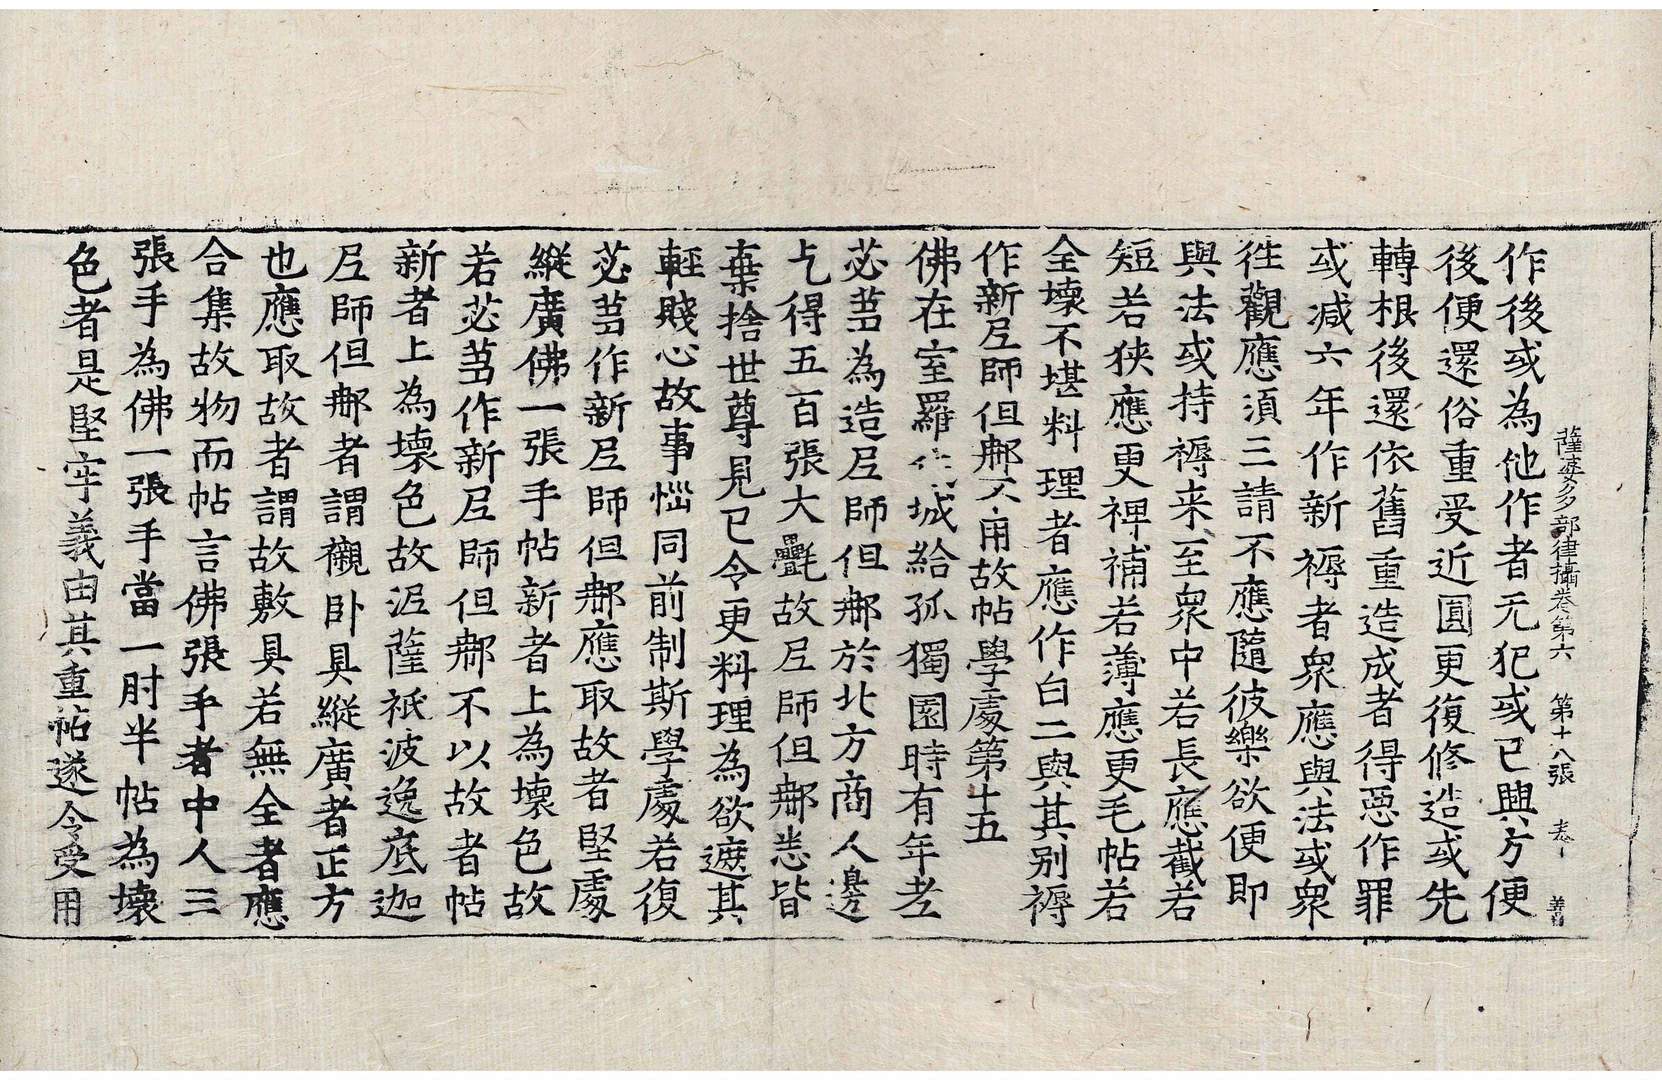 薩婆多部律攝卷第六　第十八張
作後或為他作者无犯或已興方便
後便還俗重受近圓更復修造或先
轉根後還依舊重造成者得惡作罪
或减六年作新褥者衆應與法或衆
徃觀應須三請不應隨彼樂欲便即
與法或持褥来至衆中若長應截若
短若狭應更裨補若薄應更毛帖若
全壞不堪料理者應作白二與其别褥
作新尼師但𨚗不用故帖學處第十五
佛在室羅伐城給孤獨園時有年老
苾蒭為造尼師但𨚗於北方商人邊
乞得五百張大㲲故尼師但𨚗悉皆
棄捨世尊見已令更料理為欲遮其
輕賤心故事惱同前制斯學處若復
苾蒭作新尼師但𨚗應取故者堅處
縱廣佛一張手帖新者上為壞色故
若苾蒭作新尼師但𨚗不以故者帖
新者上為壞色故泥薩祇波逸底迦
尼師但𨚗者謂襯卧具縱廣者正方
也應取故者謂故敷具若無全者應
合集故物而帖言佛張手者中人三
張手為佛一張手當一肘半帖為壞
色者是堅牢義由其重帖遂令受用